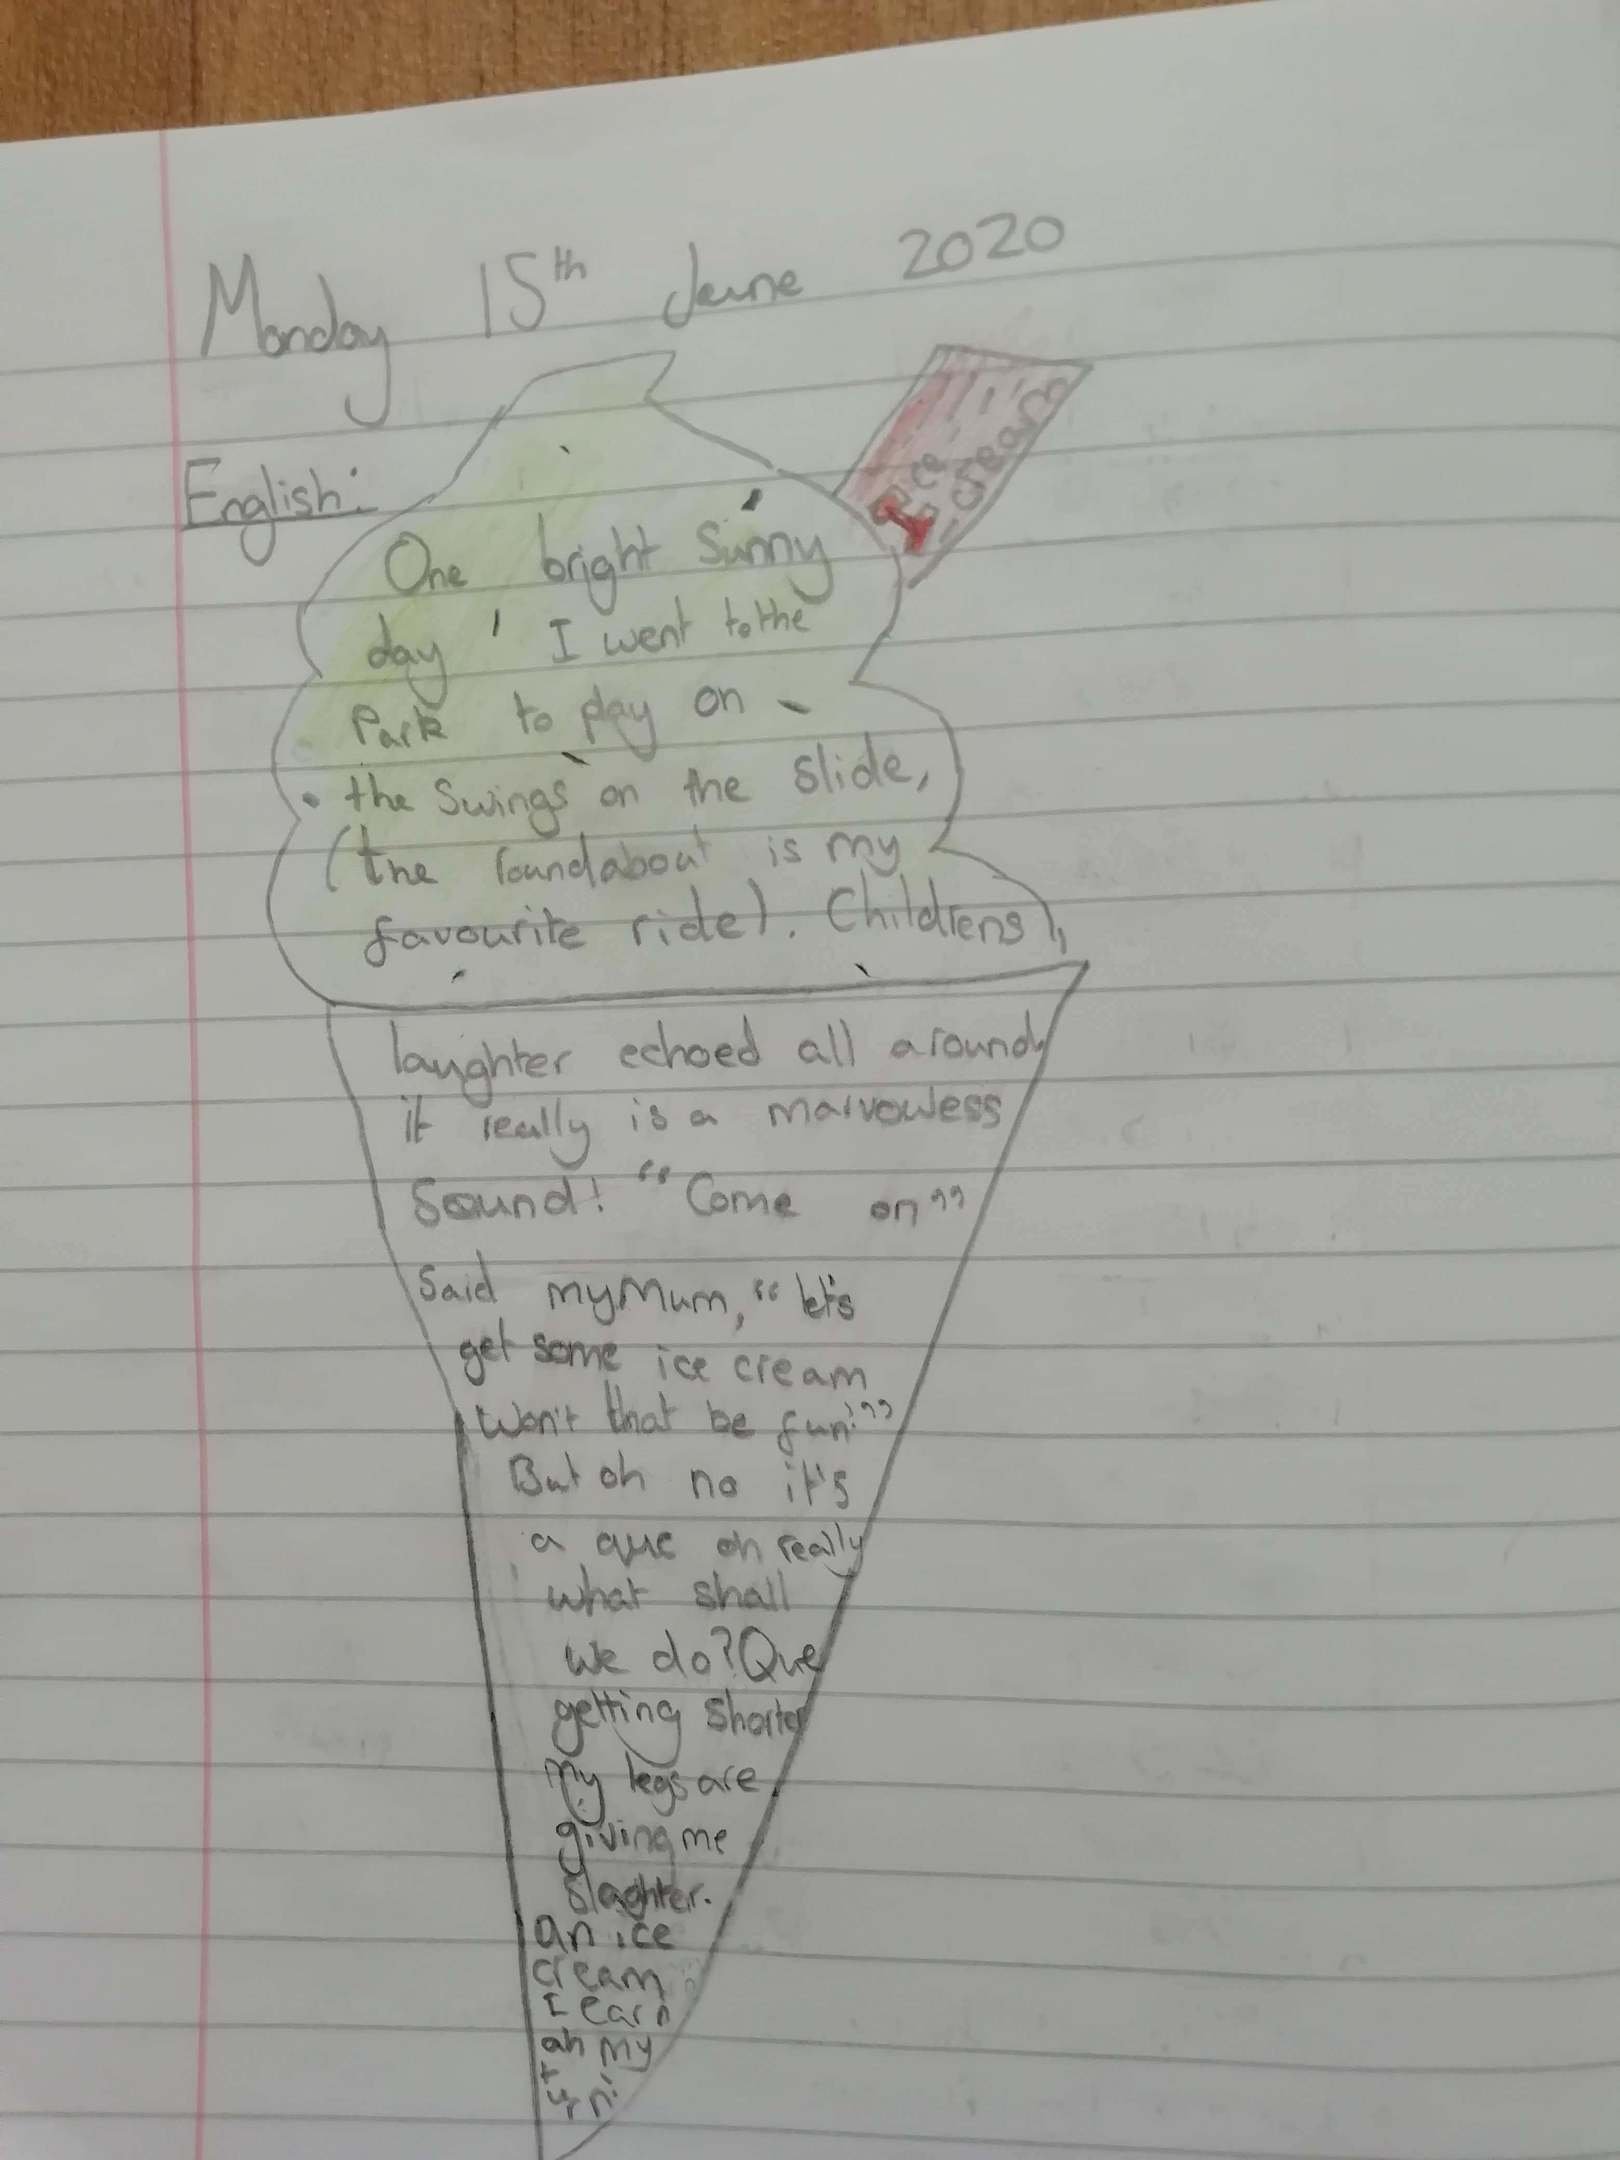 Monday 15th June 2020
Ice
cream
English:
One bright Sunny
day, I went to the
Park to play on
the Swings on the Slide,
(the roundabout is my
favourite ride). Childrens
laughter echoed all around,
it really is a marvowless
Sound! "Come on"
Said my Mum, "let's
get some ice cream
Won't that be fun!"
But oh no it's
a que oh really
what shall
we do? Que
getting shorter
my legs are
giving me
slaghter.
an ice
cream
I earn
ah my
turn!